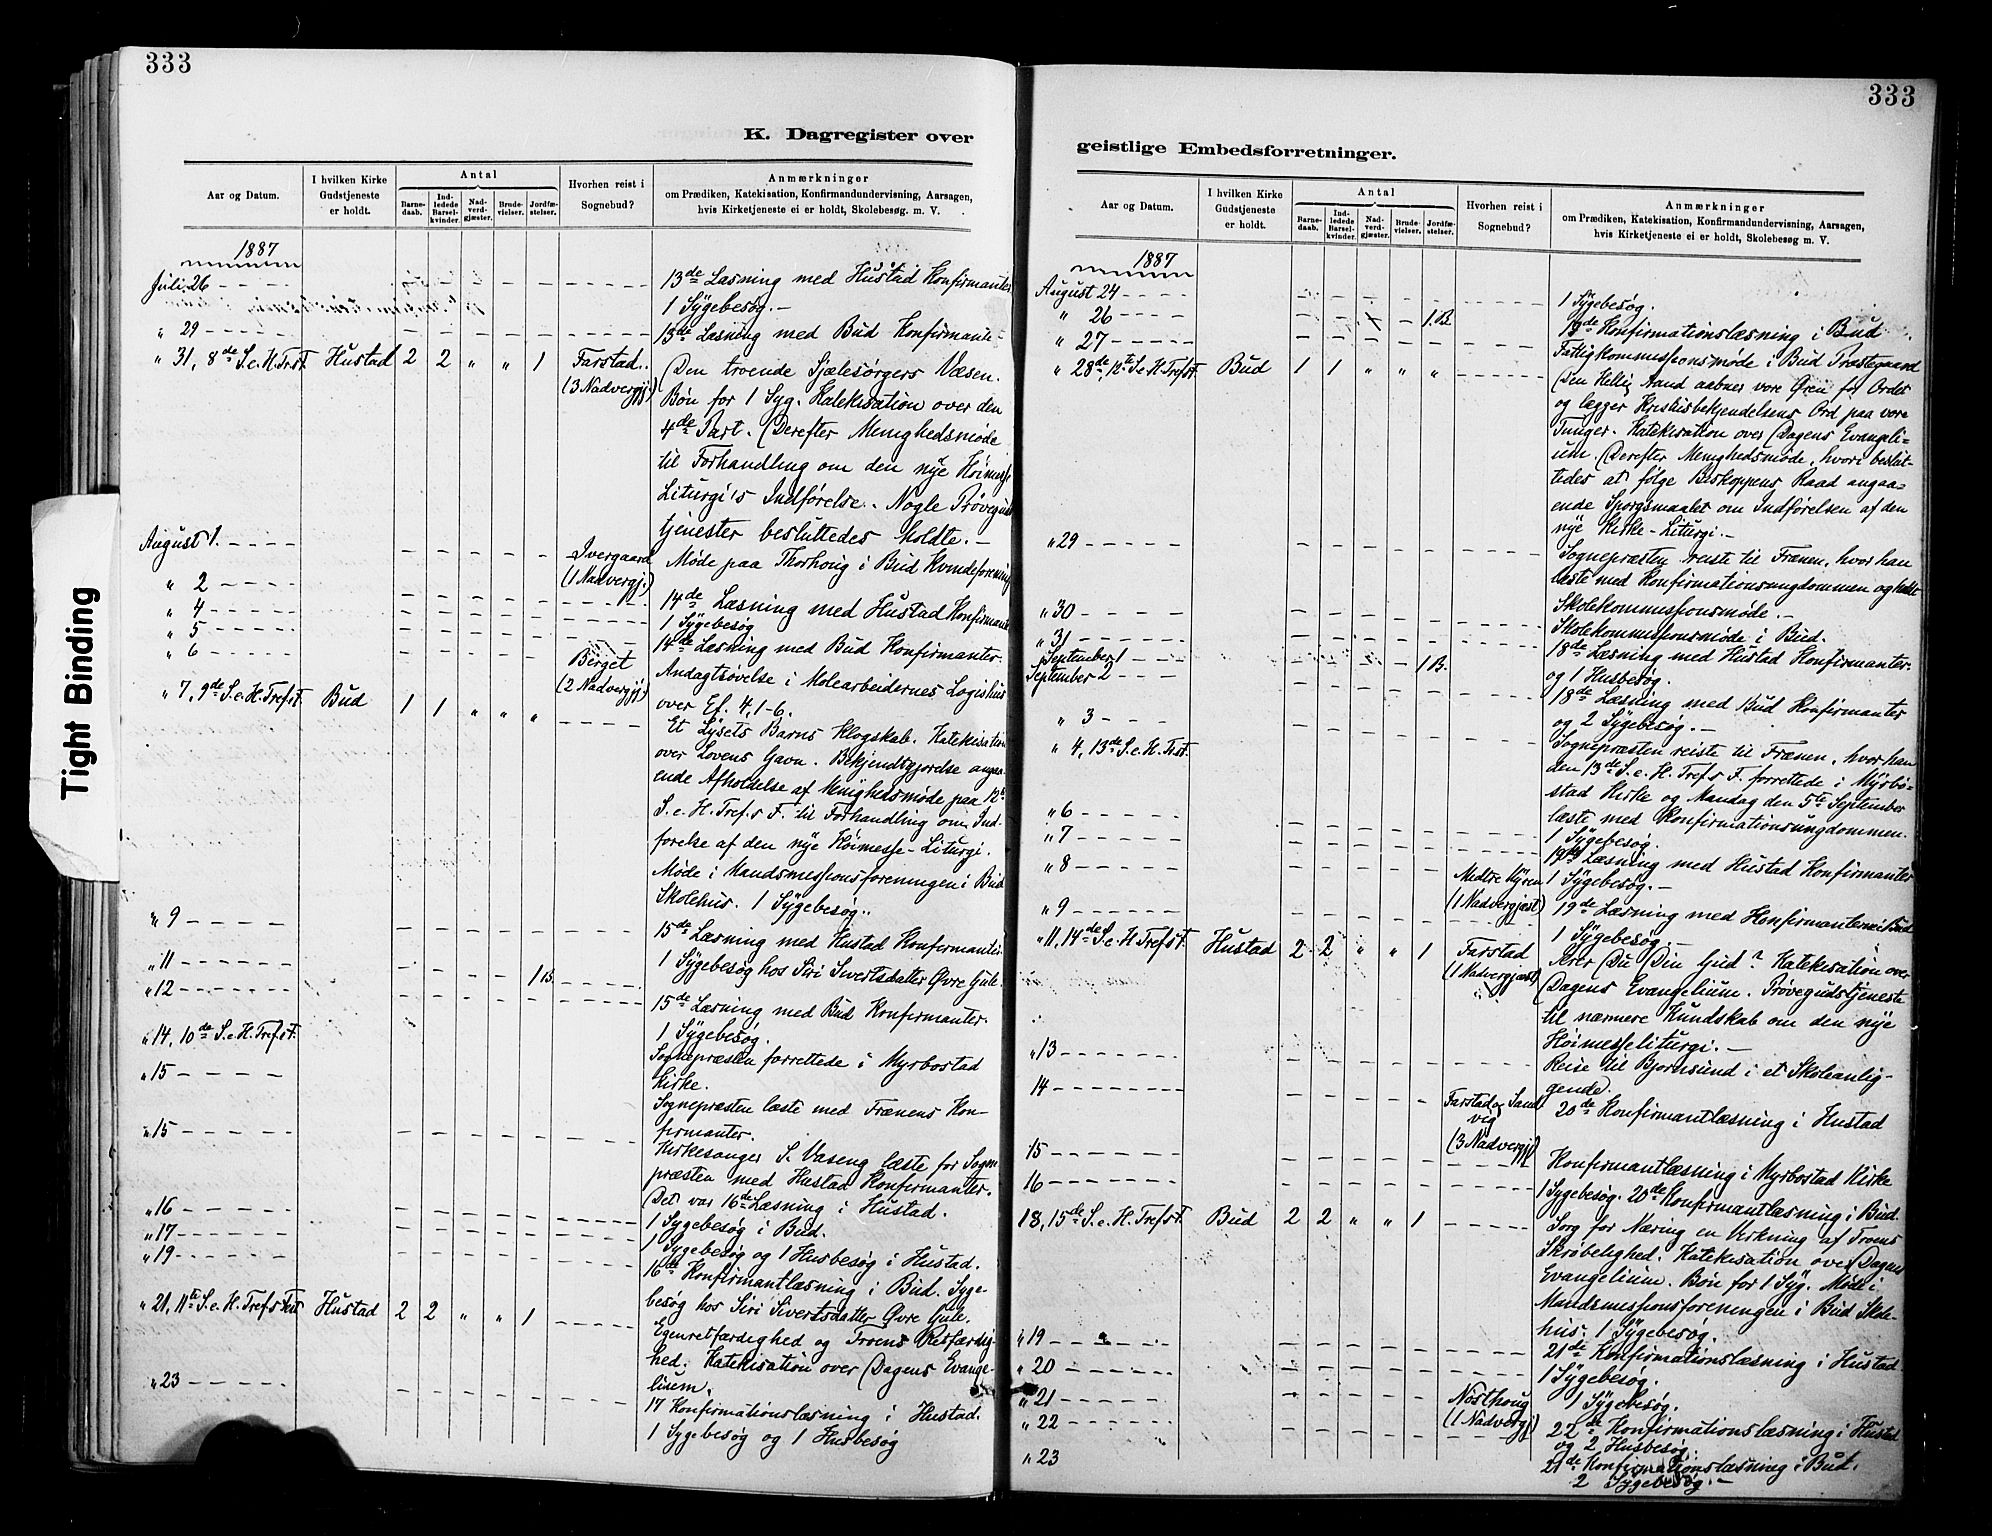 333
K. Dagregister over
Aar og Datum.
I hvilken Kirke Gudstjeneste er holdt.
Antal
Barnedaab.
Indledede Barselkvinder.
Nadverdgjæster.
Brudevielser.
Jordfæstelser.
Hvorhen reist i Sognebud?
Anmærkninger
om Prædiken, Katekisation, Konfirmandundervisning, Aarsagen,
hvis Kirketjeneste ei er holdt, Skolebesøg m. V.
1887
Juli 26 13de Læsning med Hustad Konfirmanter
1 Sygebesøg.
" 29 13de Læsning med Bud Konfirmante
" 31, 8de S. e. H. Trst. Hustad 2 2 " " 1 Farstad (3 Nadvergj.) Den troende Sjælesørgers Væsen.
Bøn for 1 Syg. Katekisation over den
4de Part. Derefter Menighedsmøde
til Forhandling om den nye Høimesse
Liturgi's Indførelse. Nogle Prøvegud
tjenester besluttedes holdte.
August 1. Ivergaard (1 Nadvergj.) Møde paa Thorhoug i Bud Kvindeforening
" 2 14de Læsning med Hustad Konfirmant
" 4 1 Sygebesøg
" 5 14de Læsning med Bud Konfirmanter.
" 6 Berget (2 Nadvergj.) Andagtsøvelse i Molearbeidernes Logishus
over Ef. 4, 1-6.
" 7, 9de S. e. H. Tref. F. Bud 1 1 " " " Et Lysets Barns Klogskab. Katekisation
over Lovens Gavn. Bekjendtgjørelse angaa-
ende Afholdelse af Menighedsmøde paa 12te
S. e. H. Tref.s F. til Forhandling om Ind-
førelse af den nye Høimesse-Liturgi.
Møde i Mandsmissionsforeningen i Bud
Skolehus. 1 Sygebesøg.
" 9 15de Læsning med Hustad Konfirmanter
" 11 1 B. 1 Sygebesøg hos Siri Sivertsdatter Øvre Gule.
" 12 15de Læsning med Bud Konfirmanter.
1 Sygebesøg.
" 14, 10de S. e. H. Tref. F. Sognepræsten forrettede i Myrbostad
Kirke.
" 15 Sognepræsten læste med Frænens Kon-
firmanter.
" 15 Kirkesanger S. Vaseng læste for Sogne
præsten med Hustad Konfirmanter.
Det var 16de Læsning i Hustad.
" 16 1 Sygebesøg i Bud.
" 17 1 Sygebesøg og 1 Husbesøg i Hustad.
" 19 16de Konfirmantlæsning i Bud. Syge-
besøg hos Siri Sivertsdatter Øvre Gule.
" 21, 11te S. e. H. Tref.s Fest Hustad 2 2 " " 1 Egenretfærdighed og Troens Retfærdig-
hed. Katekisation over Dagens Evange-
lium.
" 23 17 Konfirmationslæsning i Hustad.
1 Sygebesøg og 1 Husbesøg
333
geistlige Embedsforretninger.
Aar og Datum.
I hvilken Kirke Gudstjeneste er holdt.
Antal
Barnedaab.
Indledede Barselkvinder.
Nadverdgjæster.
Brudevielser.
Jordfæstelser.
Hvorhen reist i Sognebud?
Anmærkninger
om Prædiken, Katekisation, Konfirmandundervisning, Aarsagen,
hvis Kirketjeneste ei er holdt, Skolebesøg m. V.
1887
August 24 1 Sygebesøg.
" 26 1 B. Konfirmationslæsning i Bud
" 27 Fattigkommissionsmøde i Bud Præstegaard
" 28de, 12te S. e. H. Tref. F. Bud 1 1 " " " Den Hellig Aand aabner vore Øren for Ordet
og lægger Kristusbekjendelsens Ord paa vore
Tunger. Katekisation over Dagens Evangeli-
um. Derefter Menighedsmøde, hvori beslut-
tedes at følge Biskoppens Raad angaa-
ende Spørgsmaalet om Indførelsen af den
nye Kirke-Liturgi.
" 29 Sognepræsten reiste til Frænen, hvor han
læste med Konfirmationsungdommen og holdt
Skolekommissionsmøde.
" 30 Skolekommissionsmøde i Bud.
" 31 18de Læsning med Hustad Konfirmanter.
September 1 1 B. og 1 Husbesøg.
September 2 18de Læsning med Bud Konfirmanter
og 2 Sygebesøg.
" 3
" 4, 13de S. e. H. Trst. Sognepræsten reiste til Frænen, hvor han
den 13de S. e. H. Tref.s F. forrettede i Myrbo-
stad Kirke og Mandag den 5te September
læste med Konfirmationsungdommen.
" 6 1 Sygebesøg.
" 7 19de Læsning med Hustad Konfirmanter
" 8 Nedre Hyren (1 Nadvergjæst) 1 Sygebesøg.
" 9 19de Læsning med Konfirmanterne i Bud
1 Sygebesøg.
" 11, 14de S. e. H. Tref. F. Hustad 2 2 " " 1 Farstad (1 Nadvergjæst) Ærer Du Din Gud? Katekisation over
Dagens Evangelium. Prøvegudstjeneste
til nærmere Kundskab om den nye
Høimesseliturgi.
" 13 Reise til Bjørnsund i et Skoleanlig-
gende.
14 Farstad og Sandvig (3 Nadvergj.) 20de Konfirmantlæsning i Hustad
15 Konfirmantlæsning i Myrbostad Kirke
16 1 Sygebesøg. 20de Konfirmantlæsning i Bud.
18, 15de S. e. H. Tref. F. Bud 2 2 " " 1 Sorg for Næring en Virkning af Troens
Skrøbelighed. Katekisation over Dagens
Evangelium. Bøn for 1 Syg. Møde i
Mandsmissionsforeningen i Bud Skole-
hus. 1 Sygebesøg.
" 19 21de Konfirmationslæsning i Hustad
" 20 1 Sygebesøg.
" 21 Nøsthoug (1 Nadvergj.) 1 Sygebesøg.
" 22 22de Konfirmationslæsning i Hustad
og 2 Husbesøg.
" 23 21de Konfirmationslæsning i Bud.
2 Sygebesøg.
Tight Binding